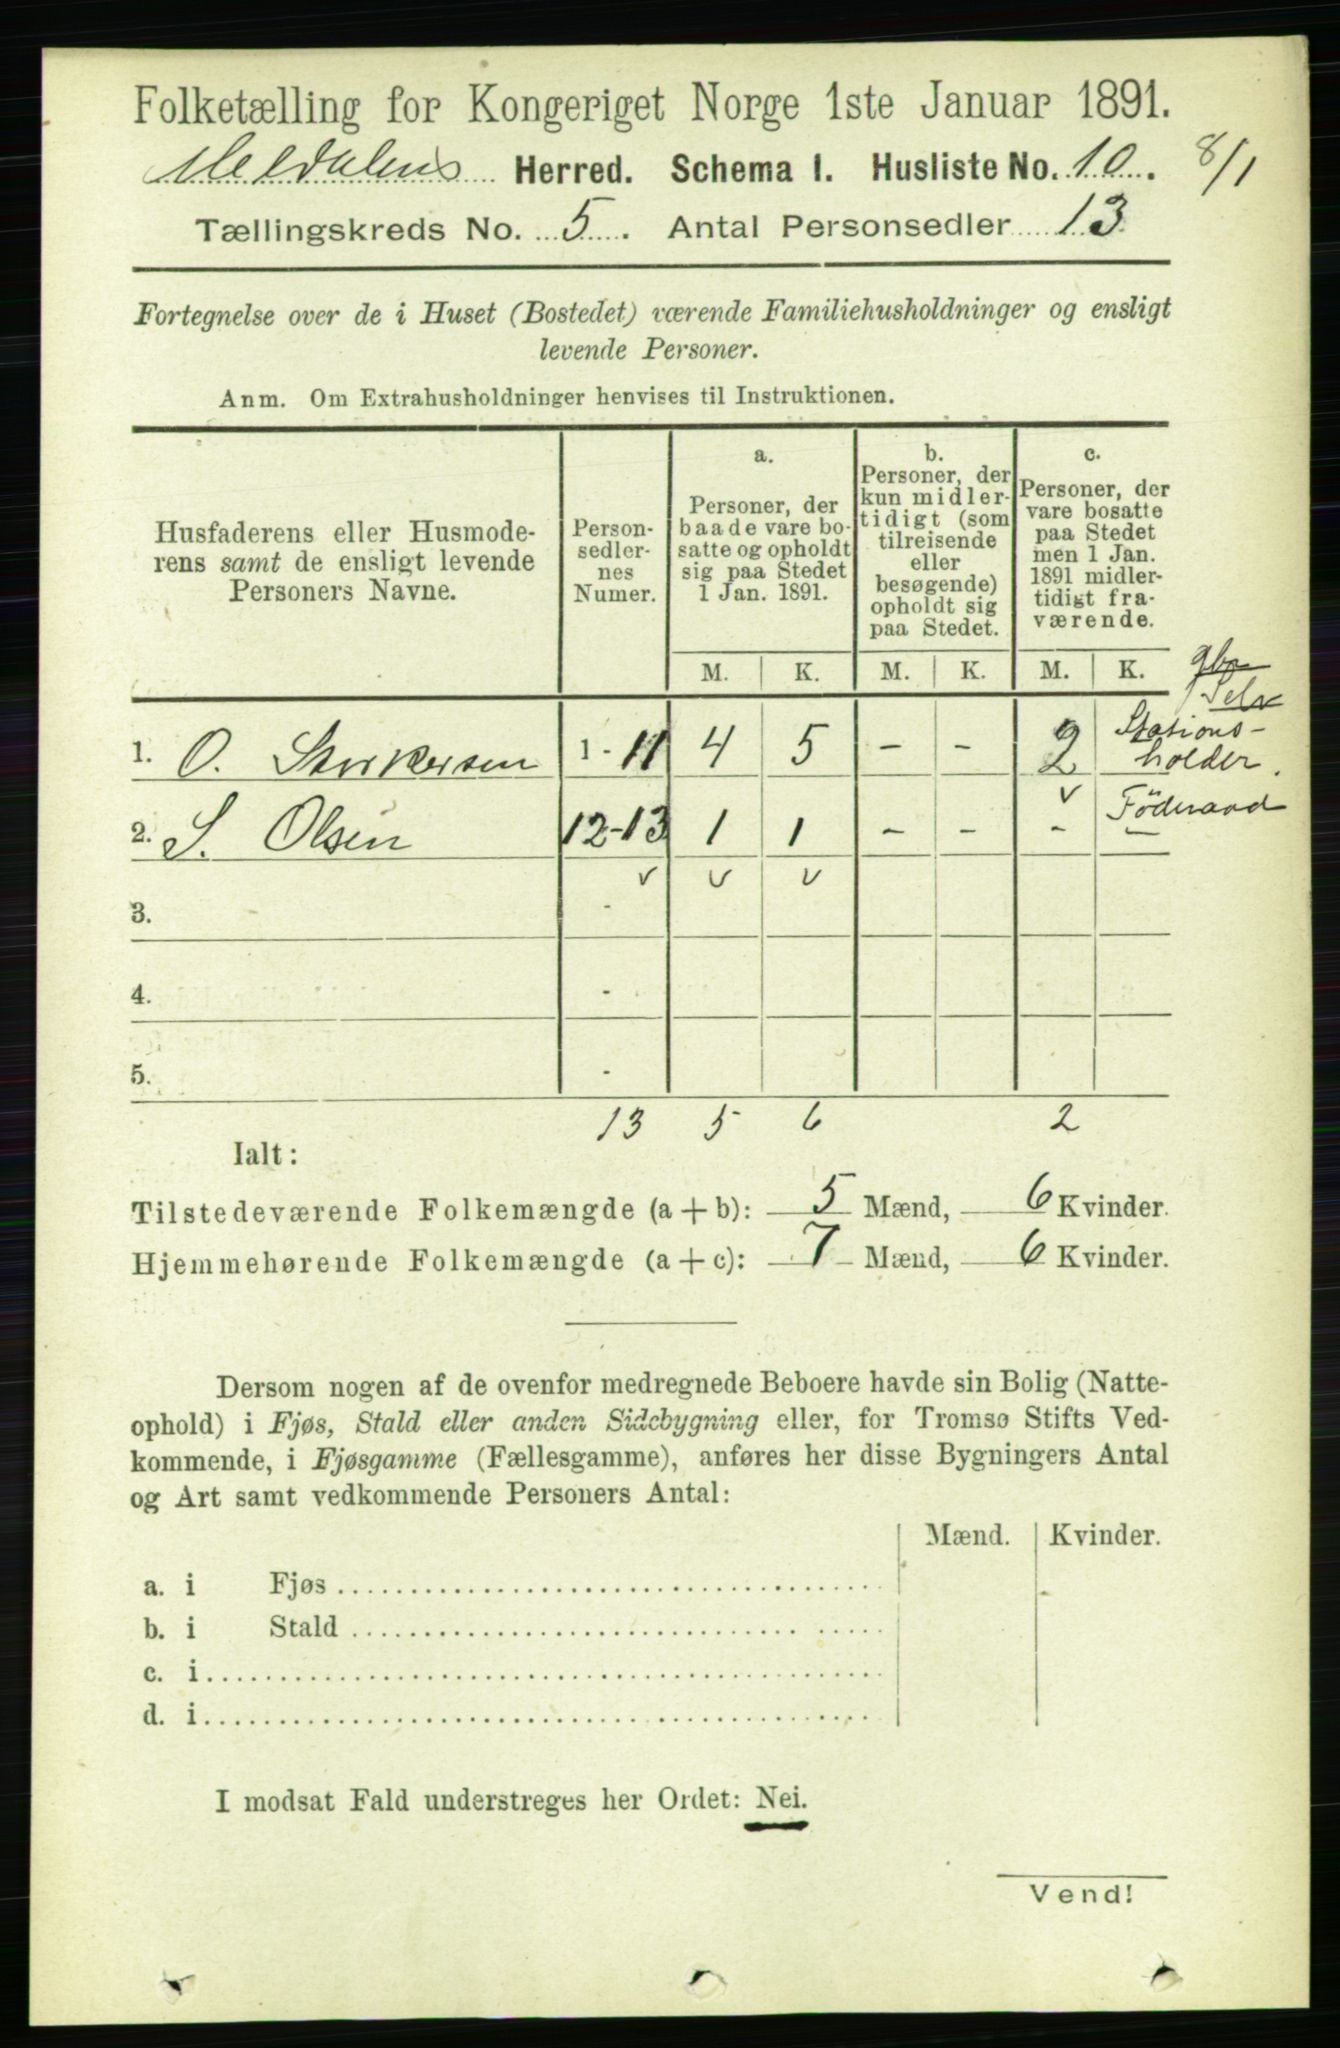 Folketælling for Kongeriget Norge 1ste Januar 1891.
Meldalens Herred. Schema I. Husliste No. 10. 8/1
Tællingskreds No. 5. Antal Personsedler 13
Fortegnelse over de i Huset (Bostedet) værende Familiehusholdninger og ensligt
levende Personer.
Anm. Om Extrahusholdninger henvises til Instruktionen.
Husfaderens eller Husmode-
rens samt de ensligt levende
Personers Navne.
Person-
sedler-
nes
Numer.
a.
Personer, der
baade vare bo-
satte og opholdt
sig paa Stedet
1 Jan. 1891.
b.
Personer, der
kun midler-
tidigt (som
tilreisende
eller
besøgende)
opholdt sig
paa Stedet.
c.
Personer, der
vare bosatte
paa Stedet
men 1 Jan.
1891 midler-
tidigt fra-
værende.
M. K. M. K. M. K.
gbr
Selv
1. O. Størkersen 1 - 11 4 5 - - 2 Stations-
holder.
2. S. Olsen 12-13 1 1 - - - - Föderaad
v v v v
3. -
4. -
5. -
13 5 6 2
Ialt:
Tilstedeværende Folkemængde (a + b): 5 Mænd, 6 Kvinder.
Hjemmehørende Folkemængde (a + c): 7 Mænd, 6 Kvinder.
Dersom nogen af de ovenfor medregnede Beboere havde sin Bolig (Natte-
ophold) i Fjøs, Stald eller anden Sidebygning eller, for Tromsø Stifts Ved-
kommende, i Fjøsgamme (Fællesgamme), anføres her disse Bygningers Antal
og Art samt vedkommende Personers Antal:
Mænd. Kvinder.
a. i Fjøs
b. i Stald
c. i
d. i
I modsat Fald understreges her Ordet: Nei.
Vend!